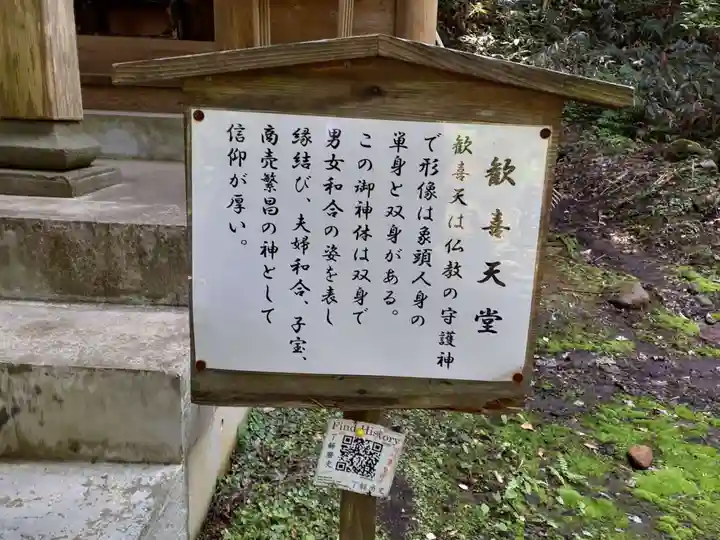 歓喜天堂
歓喜天は仏教の守護神
で形像は象頭人身の
単身と双身がある。
この御神体は双身で
男女和合の姿を表し
縁結び、夫婦和合、子宝、
商売繁昌の神として
信仰が厚い。
Find History
了解歷史